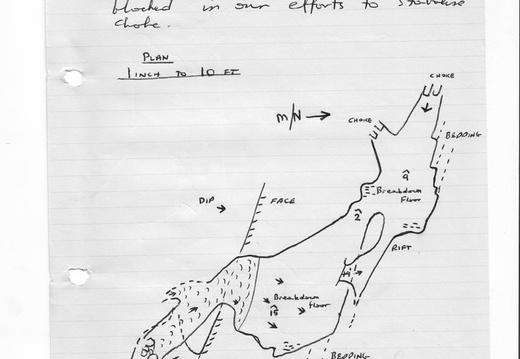 blocked in our efforts to stabilise
choke.
PLAN
1 INCH TO 10 FT
CHOKE
M/N
CHOKE
BEDDING
9
Breakdown
Floor
DIP
FACE
2
RIFT
Breakdown
floor
15
BEDDING